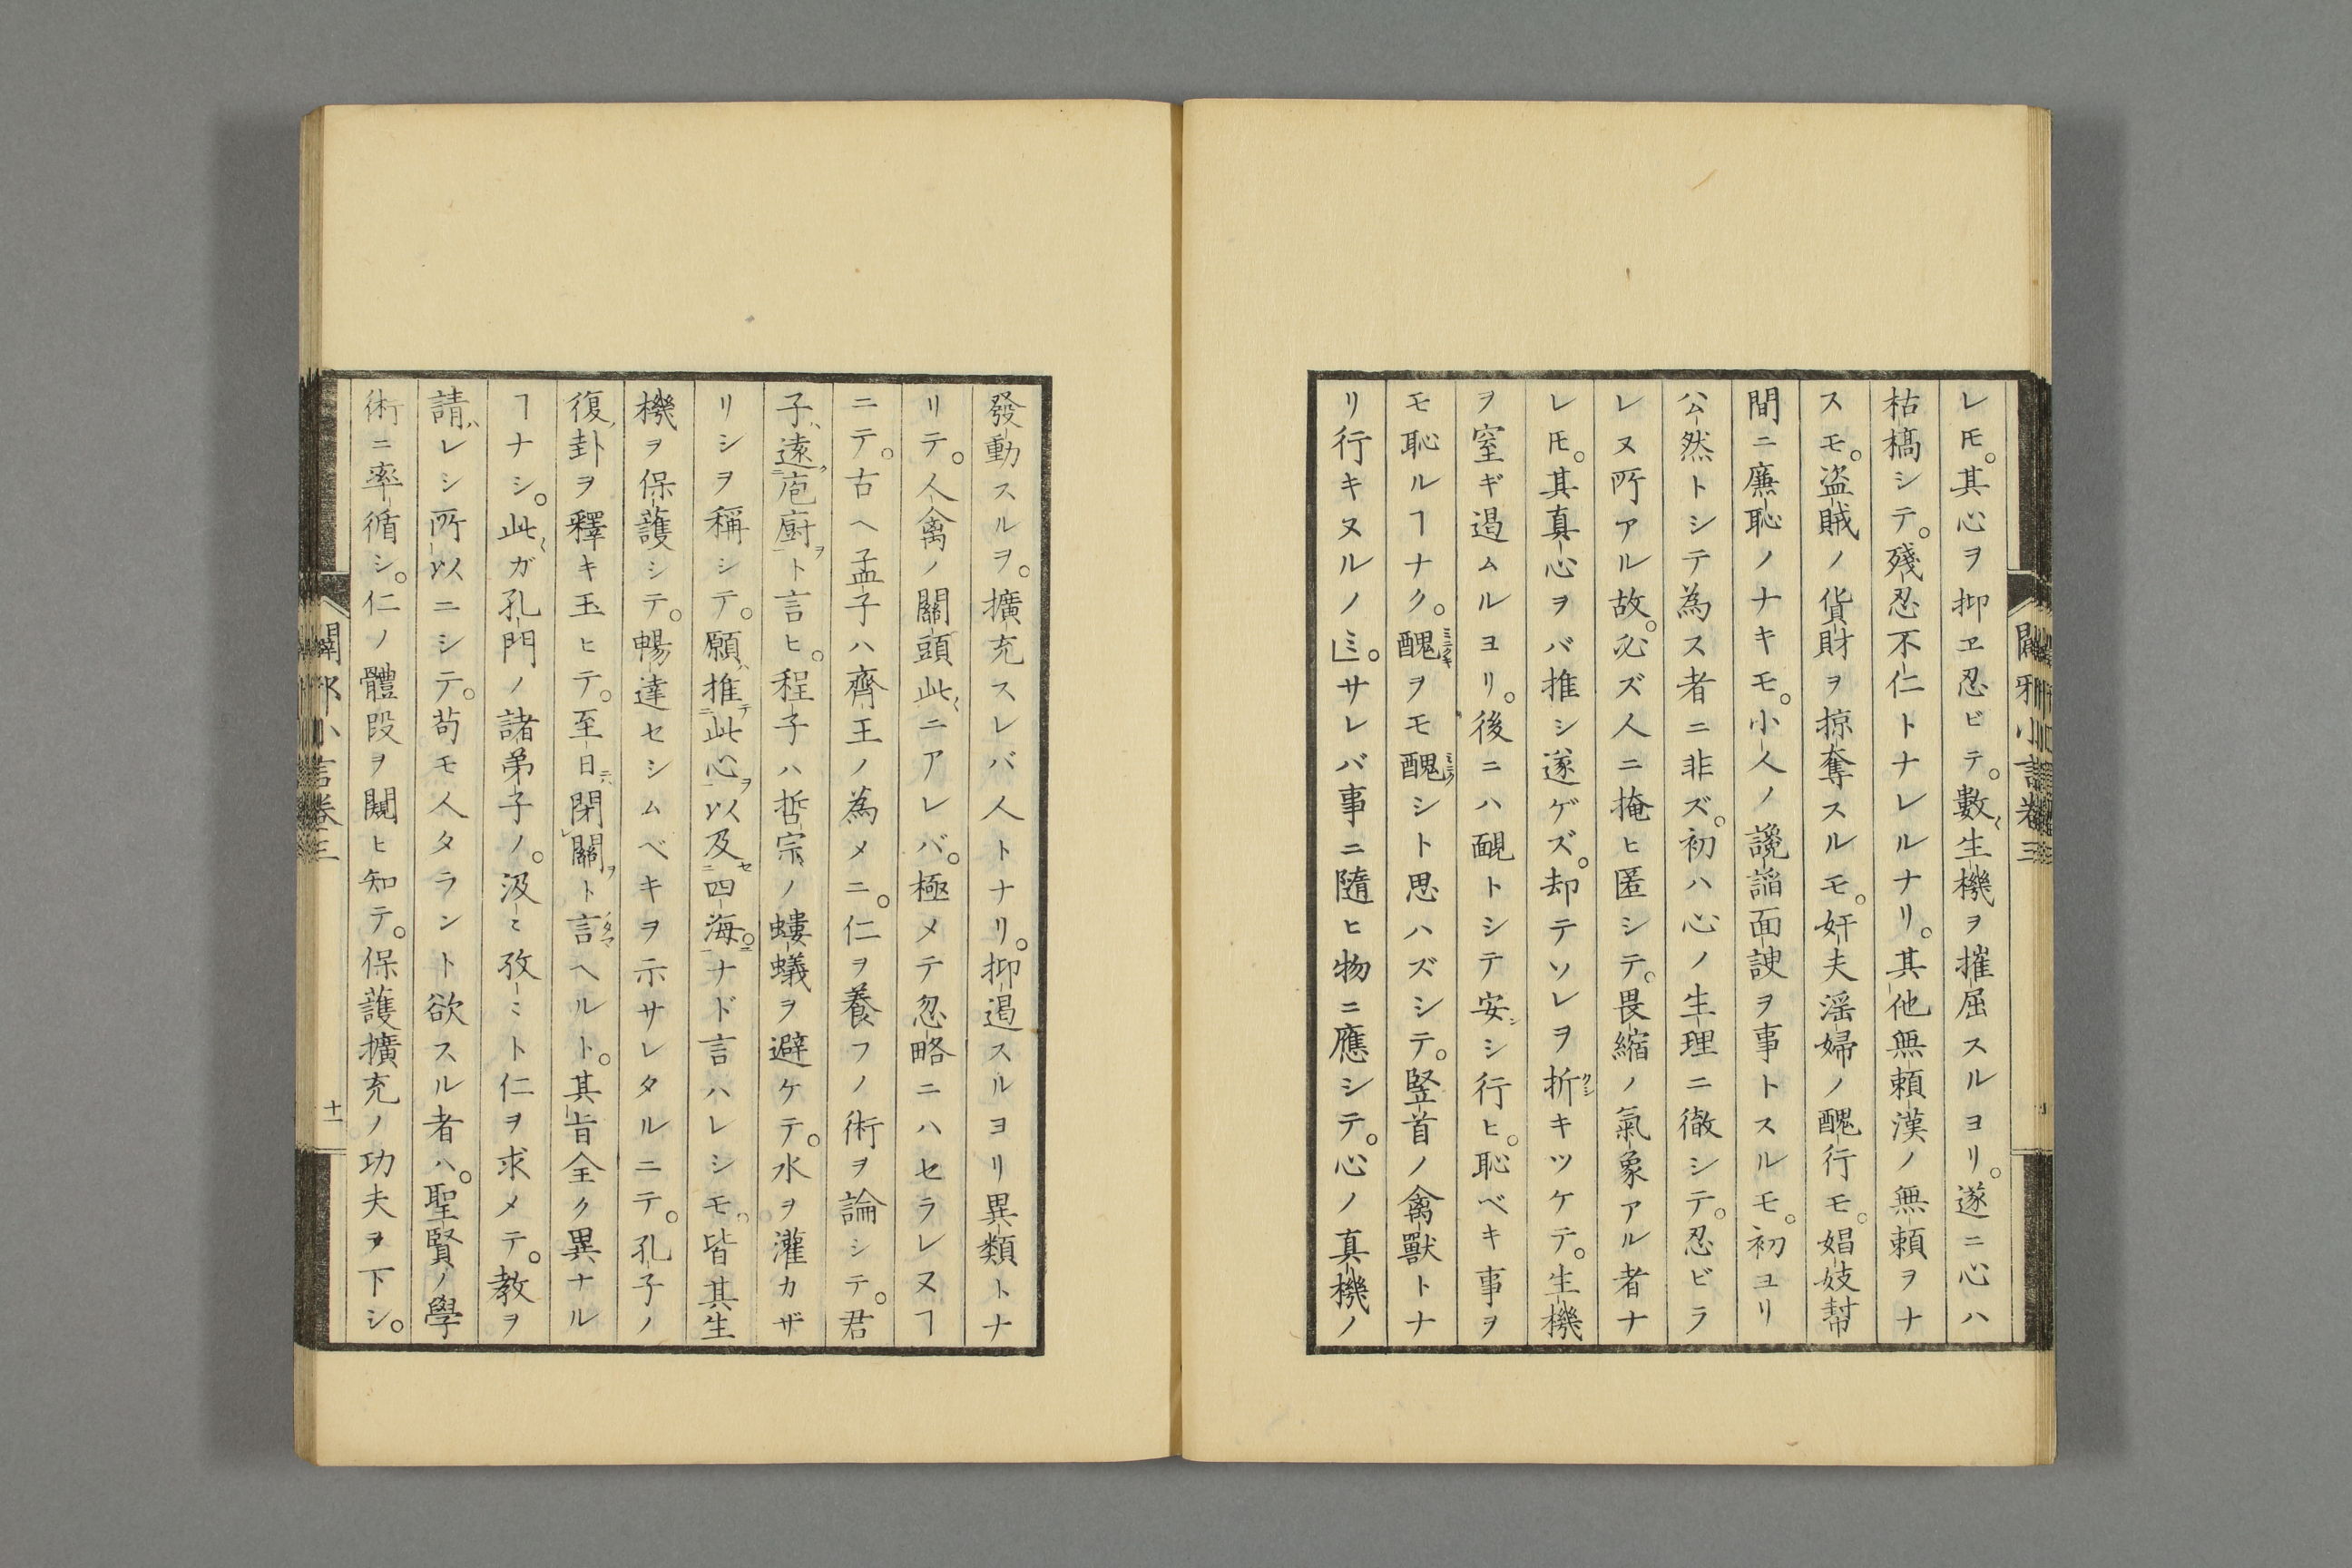 レ𪜈。其心ヲ抑ヱ忍ビテ。數〻生機ヲ摧屈スルヨリ。遂ニ心ハ
枯槁シテ。殘忍不仁トナレルナリ。其他無頼漢ノ無頼ヲナ
スモ。盗賊ノ貨財ヲ掠奪スルモ。奸夫淫婦ノ醜行モ。娼妓幇
間ニ廉恥ノナキモ。小人ノ讒諂面諛ヲ事トスルモ。初ヨリ
公然トシテ為ス者ニ非ズ。初ハ心ノ生理ニ徹シテ。忍ビラ
レヌ所アル故。必ズ人ニ掩ヒ匿シテ。畏縮ノ氣象アル者ナ
レ𪜈。其真心ヲバ推シ遂ゲズ。却テソレヲ折キツケテ。生機
ヲ窒ギ遏ムルヨリ。後ニハ靦トシテ安シ行ヒ。恥ベキ事ヲ
モ恥ルヿナク。醜ヲモ醜シト思ハズシテ。竪首ノ禽獸トナ
リ行キヌルノミ。」サレバ事ニ隨ヒ物ニ應シテ。心ノ真機ノ
發動スルヲ。擴充スレバ人トナリ。抑遏スルヨリ異類トナ
リテ。人禽ノ關頭此ニアレバ。極メテ忽略ニハセラレヌヿ
ニテ。古ヘ孟子ハ齊王ノ為メニ。仁ヲ養フノ術ヲ論シテ。君
子ハ遠ク庖廚ヲト言ヒ。程子ハ哲宗ノ螻蟻ヲ避ケテ。水ヲ灌カザ
リシヲ稱シテ。願ハ推テ此心ヲ以及セ四海ニナド言ハレシモ。皆其生
機ヲ保護シテ。暢達セシムベキヲ示サレタルニテ。孔子ノ
復卦ヲ釋キ玉ヒテ。至日閉關ヲト言ヘルト。其旨全ク異ナル
ヿナシ。此ガ孔門ノ諸弟子ノ。汲〻孜〻ト仁ヲ求メテ。教ヲ
請ハレシ所以ニシテ。苟モ人タラント欲スル者ハ。聖賢ノ學
術ニ率循シ。仁ノ體段ヲ闚ヒ知テ。保護擴充ノ功夫ヲ下シ。
闢邪小言卷三
十一